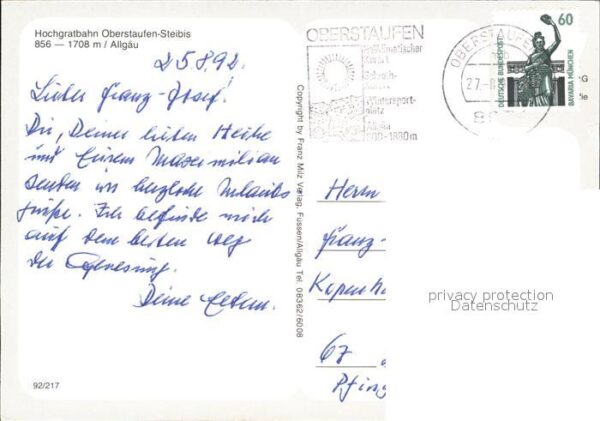 Hochgratbahn Oberstaufen-Steibis
856 — 1708 m / Allgäu
25.8.92.
Lieber Franz-Josef!
Dir, Deiner lieben Heike
und Eurem Maxemilian
senden wir herzliche Urlaubs
grüße. Ich befinde mich
auf dem besten Weg
der Genesung.
Deine Eltern.
92/217
Copyright by Franz Milz Verlag, Füssen/Allgäu Tel. 08362/6008
OBERSTAUFEN
Heilklimatischer
Kurort
Schroth-
Wintersport-
platz
Allgäu
800-1800m
OBERSTAUFEN
27.
60
DEUTSCHE BUNDESPOST
BAVARIA MÜNCHEN
Herrn
Franz-
Kopenh
67
Pfing
privacy protection
Datenschutz